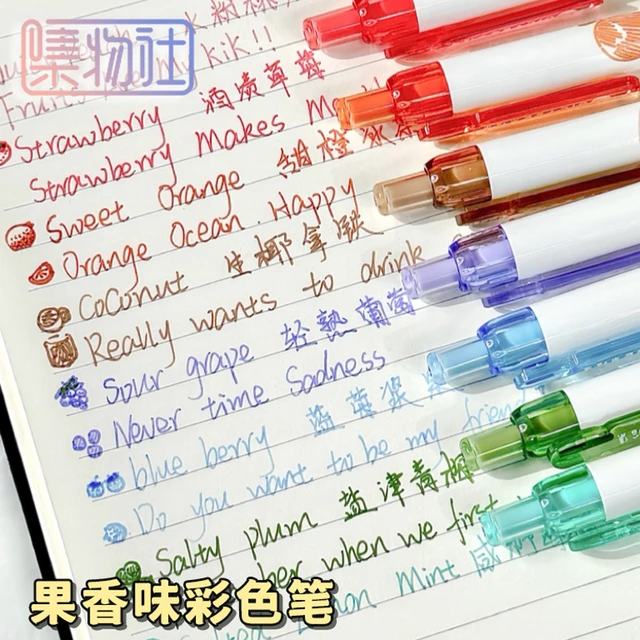 嗪物社
Strawberry 酒渍草莓
Strawberry Makes
Sweet Orange 甜橙
Orange Ocean Happy
CoConut 生椰拿铁
Really wants to drink
Sour grape 轻熟葡萄
Never time Sadness
blue berry 蓝莓
Do you want to be my friend
Salty plum 盐津青梅
when we first
Mint
果香味彩色笔